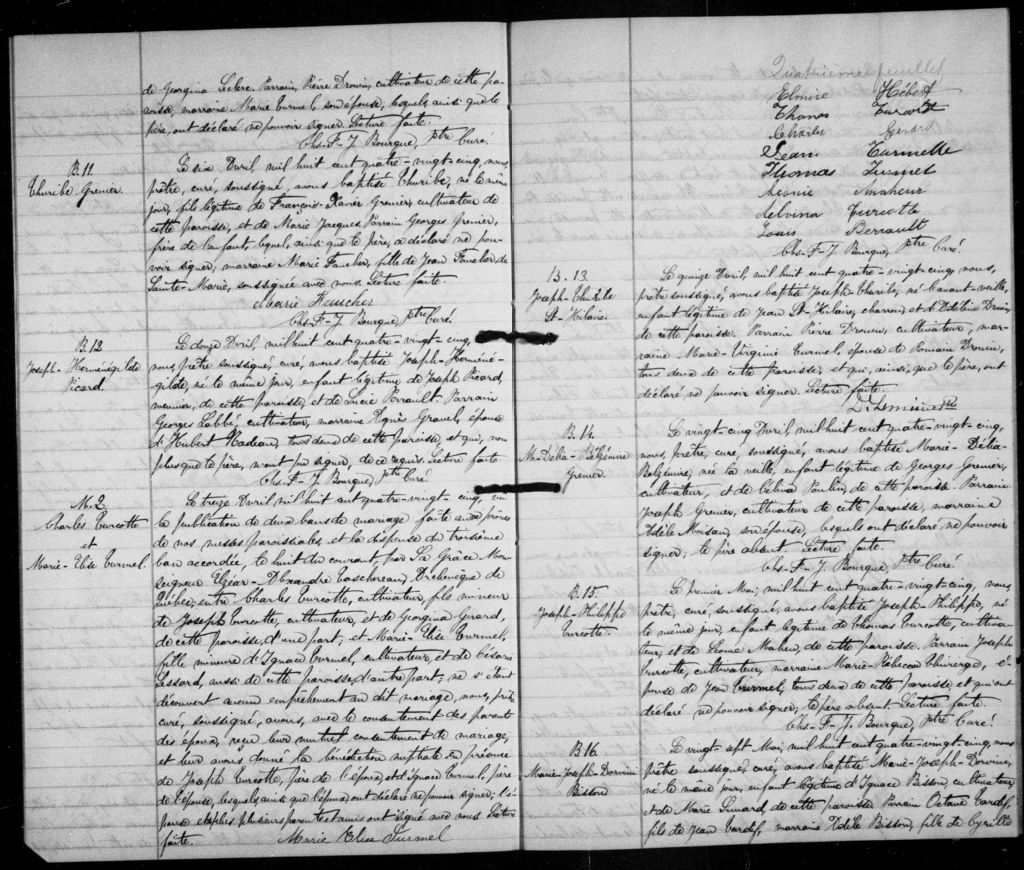 de Georgina Leclerc. Parrain, Pierre Drouin, cultivateur de cette pa-
roisse, marraine Marie Turmel, son épouse, lesquels, ainsi que le
père, ont déclaré ne pouvoir signer. Lecture faite.
Chs-F-J Bourque, Ptre Curé.
B.11
Thuribe Grenier.
Le six Avril, mil huit cent quatre-vingt-cinq, nous,
prêtre, curé, soussigné, avons baptisé Thuribe, né le même
jour, fils légitime de François-Xavier Grenier, cultivateur de
cette paroisse, et de Marie Jacques. Parrain Georges Grenier,
frère de l'enfant, lequel, ainsi que le père, a déclaré ne pou-
voir signer, marraine Marie Faucher, fille de Jean Faucher de
Sainte-Marie, soussignée avec nous. Lecture faite.
Marie Faucher
Chs-F-J Bourque, Ptre Curé.
B.12
Joseph-Herménégilde
Picard.
Le douze Avril, mil huit cent quatre-vingt-cinq,
nous, prêtre, soussigné, curé, avons baptisé Joseph-Herméné-
gilde, né le même jour, enfant légitime de Joseph Picard,
meunier, de cette paroisse, et de Lucie Perrault. Parrain
Georges Labbé, cultivateur, marraine Agnès Gravel, épouse
d'Hubert Nadeau, tous deux de cette paroisse, et qui, non
plus que le père, n'ont pu signer, de ce requis. Lecture faite
Chs-F-J Bourque, Ptre Curé.
M.2
Charles Turcotte
et
Marie-Elise Turmel.
Le treize Avril mil huit cent quatre-vingt-cinq, vu
la publication de deux bans de mariage faite aux prônes
de nos messes paroissiales, et la dispense du troisième
ban accordée, le huit du courant, par Sa Grâce Mon-
seigneur Elzéar-Alexandre Taschereau, Archevêque de
Québec, entre Charles Turcotte, cultivateur, fils mineur
de Joseph Turcotte, cultivateur, et de Georgina Girard,
de cette paroisse, d'une part; et Marie-Elise Turmel,
fille mineure d'Ignace Turmel, cultivateur, et de Césarie
Lessard, aussi de cette paroisse, d'autre part, ne s'étant
découvert aucun empêchement au dit mariage, nous, prêtre
curé, soussigné, avons, avec le consentement des parents
des époux, reçu leur mutuel consentement de mariage,
et leur avons donné la bénédiction nuptiale en présence
de Joseph Turcotte, père de l'époux, et d'Ignace Turmel, père
de l'épouse, lesquels, ainsi que l'époux, ont déclaré ne pouvoir signer; l'é-
pouse et plusieurs parents et amis ont signé avec nous. Lecture
faite.
Marie Elise Turmel
Quatrième feuillet
Elmire Hébert
Thomas Turcott
Charlie Gérard
Jean Turmelle
Thomas Turmel
Léonie Maheux
Delvina Turcotte
Louis Perrault
Chs-F-J Bourque, Ptre Curé.
B.13
Joseph-Thuribe
St-Hilaire.
Le quinze Avril, mil huit cent quatre-vingt-cinq, nous,
prêtre soussigné, avons baptisé Joseph-Thuribe, né l'avant-veille,
enfant légitime de Jean St-Hilaire, charron, et d'Adéline Drouin,
de cette paroisse. Parrain Pierre Drouin, cultivateur, mar-
raine Marie-Virginie Turmel, épouse de Romain Drouin,
tous deux de cette paroisse, et qui, ainsi que le père, ont
déclaré ne pouvoir signer. Lecture faite.
B.14
M-Délia-Belzémire
Grenier.
Le vingt-cinq Avril, mil huit cent quatre-vingt-cinq,
nous, prêtre, curé, soussigné, avons baptisé Marie-Délia-
Belzémire, née la veille, enfant légitime de Georges Grenier,
cultivateur, et de Célina Poulin, de cette paroisse. Parrain
Joseph Grenier, cultivateur de cette paroisse, marraine
Adèle Moisan, son épouse, lesquels ont déclaré ne pouvoir
signer; le père absent. Lecture faite.
Chs-F-J Bourque, Ptre Curé
B.15
Joseph-Philippe
Turcotte.
Le premier Mai, mil huit cent quatre-vingt-cinq, nous,
prêtre, curé, soussigné, avons baptisé Joseph-Philippe, né
le même jour, enfant légitime de Thomas Turcotte, cultiva-
teur, et de Léonie Maheu, de cette paroisse. Parrain Joseph
Turcotte, cultivateur, marraine Marie-Rébecca Thivierge, é-
pouse de Jean Turmel, tous deux de cette paroisse et qui ont
déclaré ne pouvoir signer; le père absent. Lecture faite.
Chs-F-J. Bourque, Ptre Curé.
B.16
Marie-Joseph-Dorvini
Bisson
Le vingt-sept Mai, mil huit cent quatre-vingt-cinq, nous
prêtre soussigné, curé, avons baptisé Marie-Joseph-Dorvini,
né le même jour, enfant légitime d'Ignace Bisson, cultivateur,
et de Marie Simard, de cette paroisse. Parrain Octave Tardif,
fils de Jean Tardif, marraine Adèle Bisson, fille de Cyrille